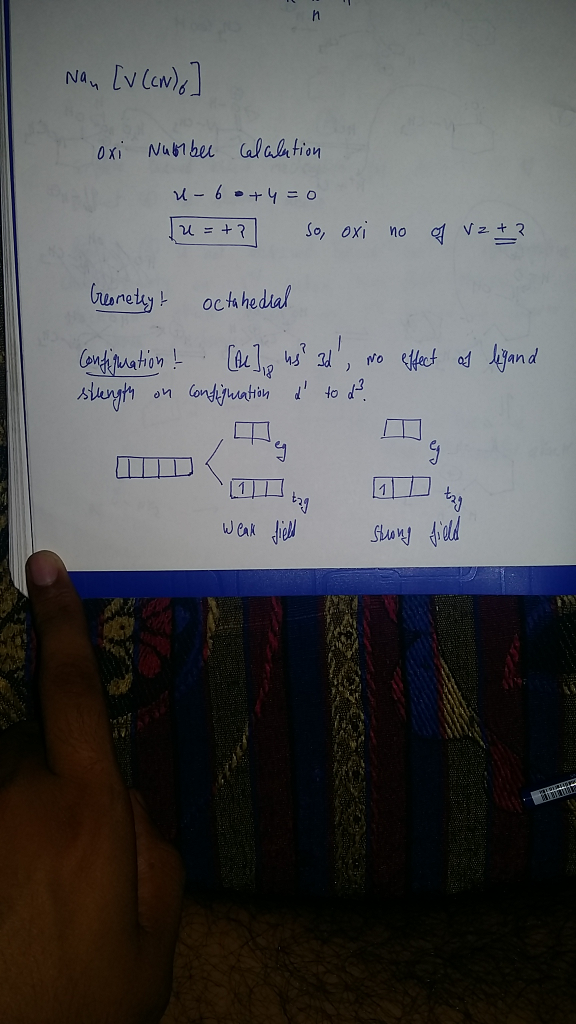 n
Na4 [V(CN)6]
oxi Number Calculation
x - 6 + 4 = 0
x = +2 So, oxi no of V = +2
Geometry:- octahedral
Configuration:- [Ar]18 4s2 3d1, No effect of ligand
strength on configuration d1 to d3.
eg eg
1 t2g 1 t2g
Weak field Strong field